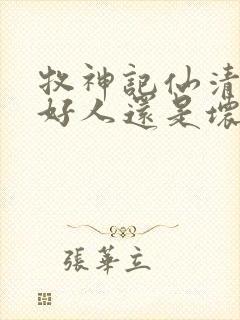 牧神記仙清
好人還是壞
張華立